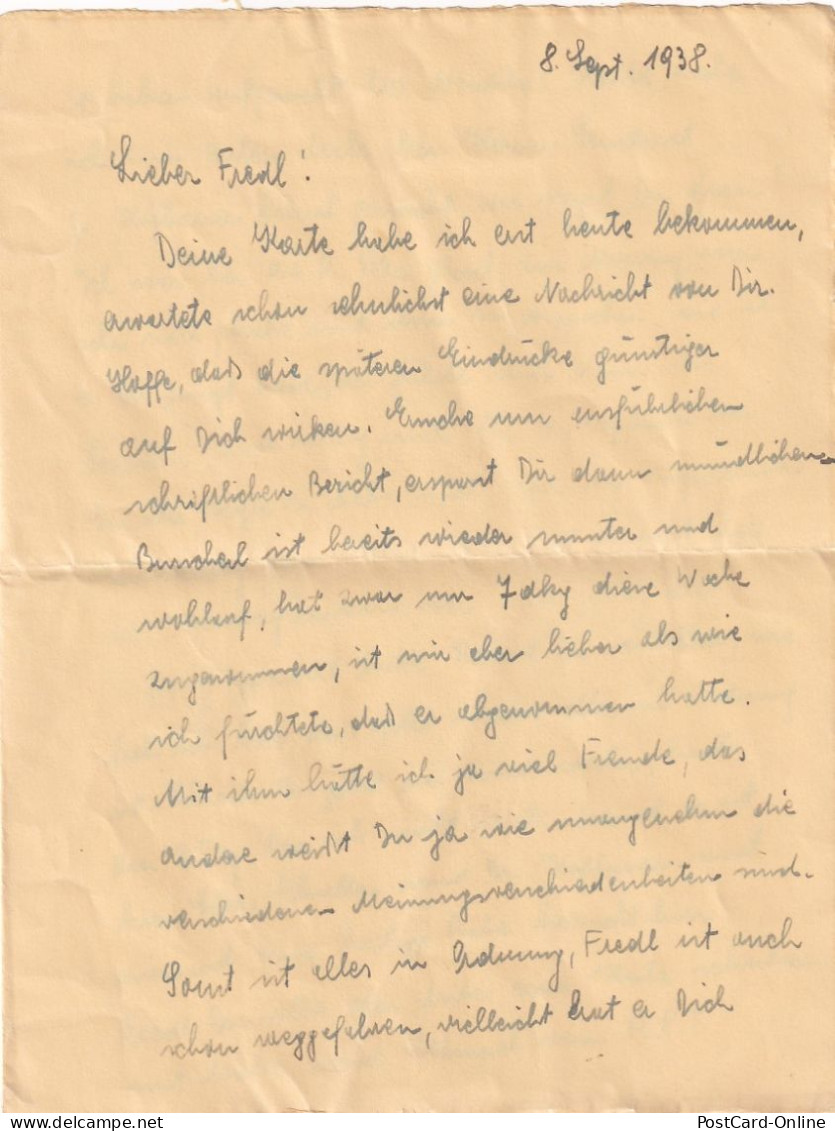 8. Sept. 1938.
Lieber Fredl!
Deine Karte habe ich erst heute bekommen,
erwartete schon sehnlichst eine Nachricht von Dir.
Hoffe, daß die späteren Eindrücke günstiger
auf Dich wirken. Ersuche um ausführlichen
schriftlichen Bericht, ersparst Dir dann mündlichen
Burscherl ist bereits wieder munter und
wohlauf, hat zwar nur 7 dkg diese Woche
zugenommen, ist mir aber lieber als wie
ich fürchtete, daß er abgenommen hätte.
Mit ihm hätte ich ja viel Freude, das
andere weißt Du ja wie unangenehm die
verschiedenen Meinungsverschiedenheiten sind.
Sonst ist alles in Ordnung, Fredl ist auch
schon weggefahren, vielleicht hat er Dich
PostCard-Online